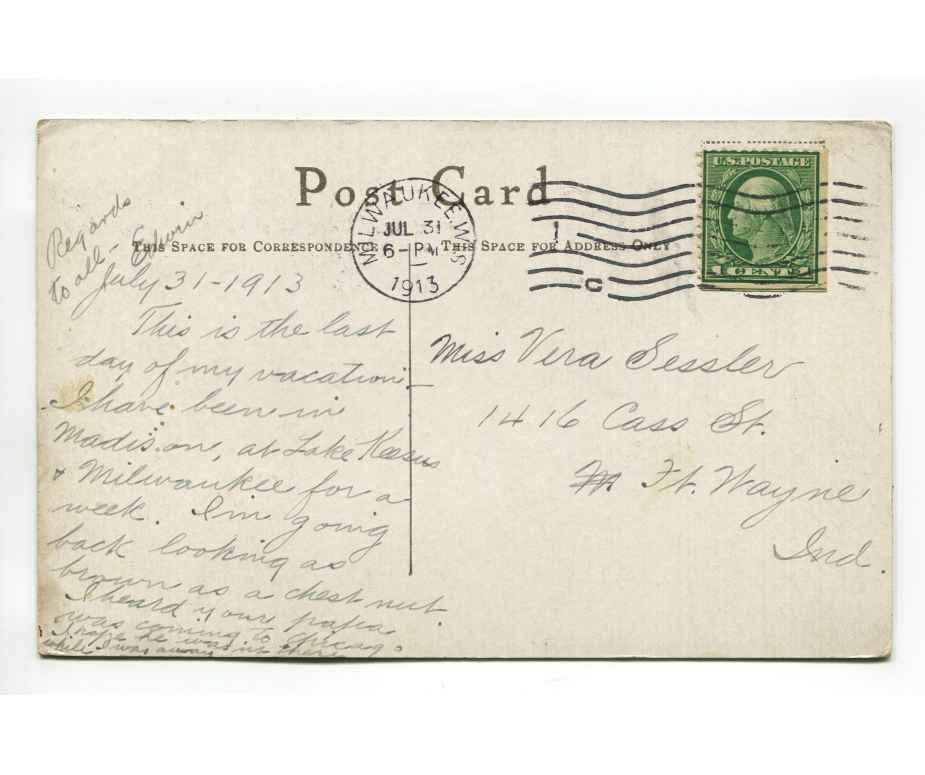 Post Card
THIS SPACE FOR CORRESPONDENCE
THIS SPACE FOR ADDRESS ONLY
MILWAUKEE, WIS
JUL 31
6-PM
1913
1
C
U.S. POSTAGE
1 CENT 1
Regards
to all -
Edwin
July 31-1913
This is the last
day of my vacation. -
I have been in
Madison, at Lake Keesus
& Milwaukee for a
week. I'm going
back looking as
brown as a chestnut
I heard your papa
was coming to Chicago
I hope he wasn't there
while I was away
Miss Vera Sessler
1416 Cass St.
Ft. Wayne
Ind.